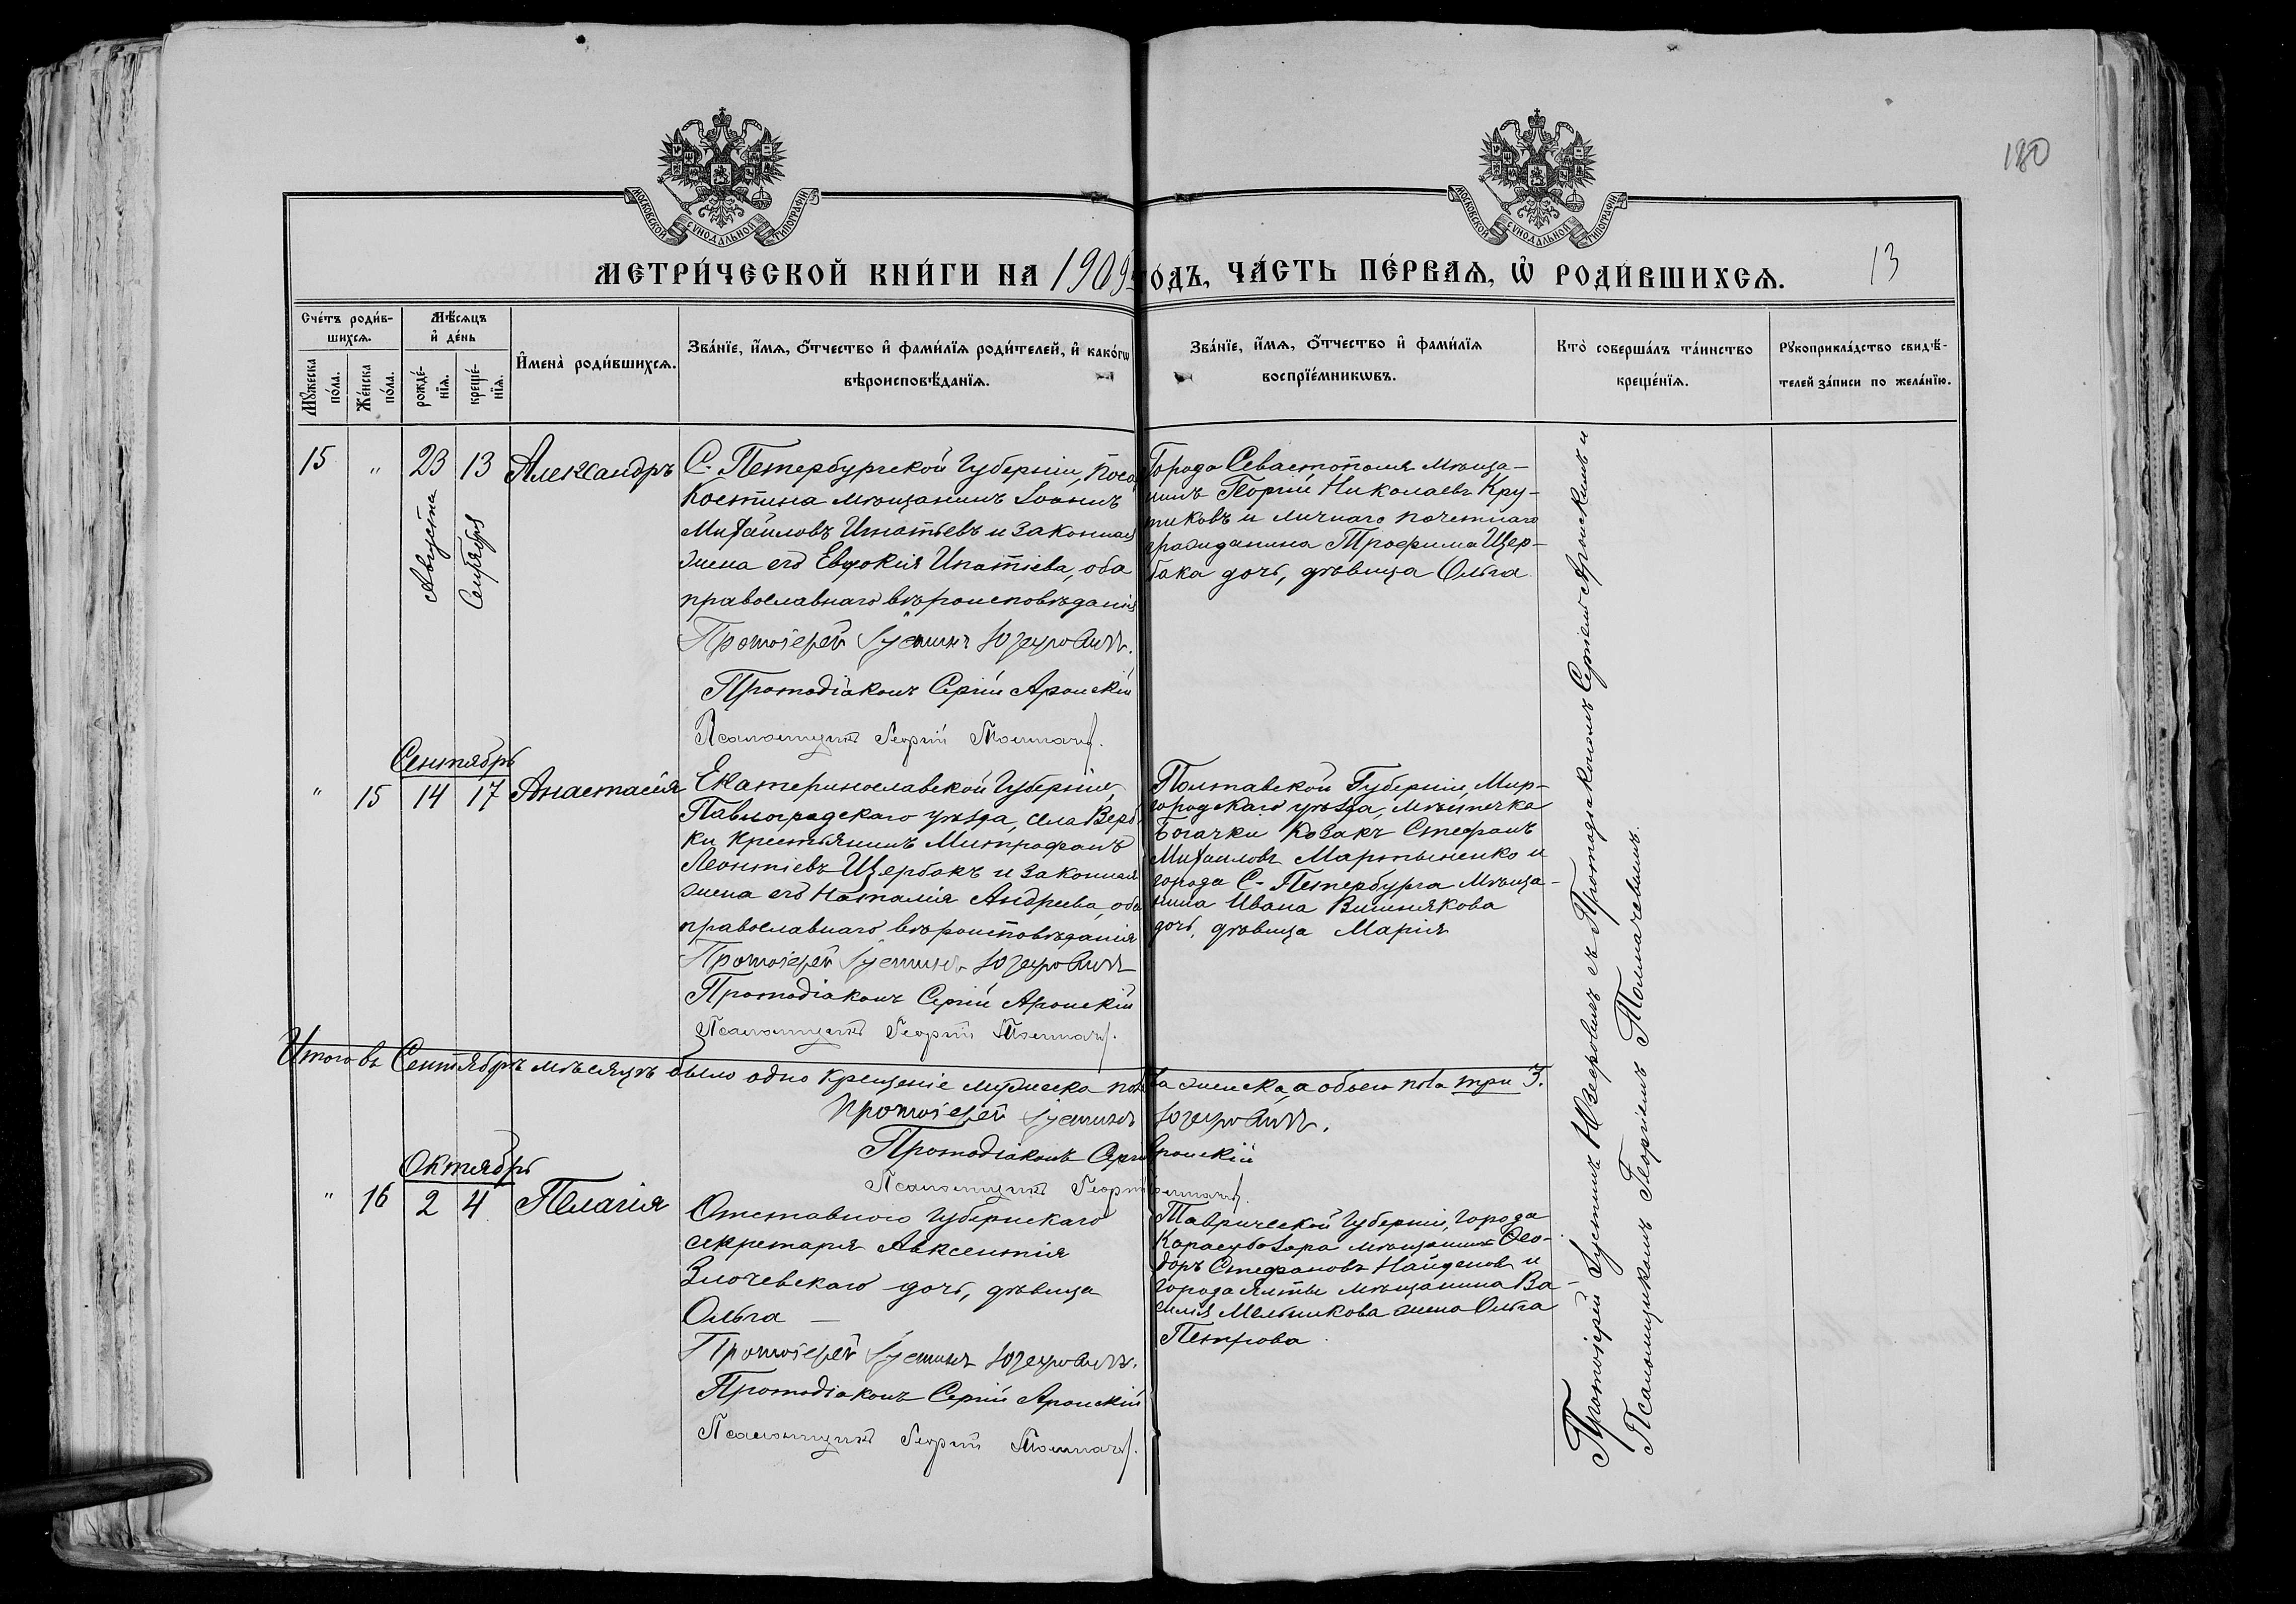 180
МОСКОВСКОЙ СѴНОДАЛЬНОЙ ТИПОГРАФІИ
МОСКОВСКОЙ СѴНОДАЛЬНОЙ ТИПОГРАФІИ
МЕТРИ́ЧЕСКОЙ КНИ́ГИ НА 1909 ГО́ДЪ, ЧА́СТЬ ПЕ́РВАѦ, Ѡ҆ РОДИ́ВШИХСѦ.
13
Сче́тъ роди́в-
шихсѧ.
Мꙋ́жеска по́ла.
Же́нска по́ла.
Мѣ́сѧцъ
и҆ де́нь
рожде́-
нїѧ.
креще́-
нїѧ.
И҆мена̀ роди́вшихсѧ.
Зва́нїе, и҆́мѧ, ѻ҆́тчество и҆ фами́лїѧ роди́телей, и҆ како́гѡ
вѣроисповѣ́данїѧ.
Зва́нїе, и҆́мѧ, ѻ҆́тчество и҆ фами́лїѧ
воспрїе́мникѡвъ.
Кто̀ соверша́лъ та́инство
креще́нїѧ.
Рꙋкоприкла́дство свидѣ́-
телей за́писи по жела́нїю.
15 " 23 13 Александръ
Августа
Сентября
С.-Петербургской Губерніи, Поса
Костина мѣщанинъ Іоаннъ
Михаиловъ Игнатьевъ и законная
жена его Евдокія Ипатіева, оба
православнаго вѣроисповѣданія
Протоіерей Іустинъ Юзефовичъ.
Протодіаконъ Сергій Аронскій
Псаломщикъ Георгій Толмач
Города Севастополя мѣща-
нинъ Георгій Николаевъ Кру-
тиковъ и личнаго почетнаго
гражданина Трофима Щер-
бака дочь, дѣвица Ольга
Сентябрь
" 15 14 17 Анастасія
Екатеринославской Губерніи,
Павлоградскаго уѣзда, села Верб
ки крестьянинъ Митрофанъ
Леонтіевъ Щербакъ и законная
жена его Наталія Андреева, оба
православнаго вѣроисповѣданія
Протоіерей Іустинъ Юзефовичъ
Протодіаконъ Сергій Аронскій
Псаломщикъ Георгій Толмач
Полтавской Губерніи, Мир-
городскаго уѣзда, мѣстечка
Богачки козакъ Стефанъ
Михаиловъ Мартыненко и
города С.-Петербурга мѣща-
нина Ивана Вишнякова
дочь, дѣвица Марія
Итого въ Сентябрѣ мѣсяцѣ было одно крещеніе мужеска по ла женска, а обоего пола три 3.
Протоіерей Іустинъ Юзефовичъ.
Протодіаконъ Сергій Аронскій
Псаломщикъ Георгій Толмач
Октябрь
" 16 2 4 Пелагія
Отставного Губернскаго
секретаря Авксентія
Злочевскаго дочь, дѣвица
Ольга —
Протоіерей Іустинъ Юзефовичъ.
Протодіаконъ Сергій Аронскій
Псаломщикъ Георгій Толмач
Таврической Губерніи, города
Карасубазара мѣщанинъ Ѳео-
доръ Стефановъ Найденовъ и
города Ялты мѣщанина Ва-
силія Мельникова жена Ольга
Петрова
Протоіерей Іустинъ Юзефовичъ съ Протодіакономъ Сергіемъ Аронскимъ и
Псаломщикомъ Георгіемъ Толмачевымъ.